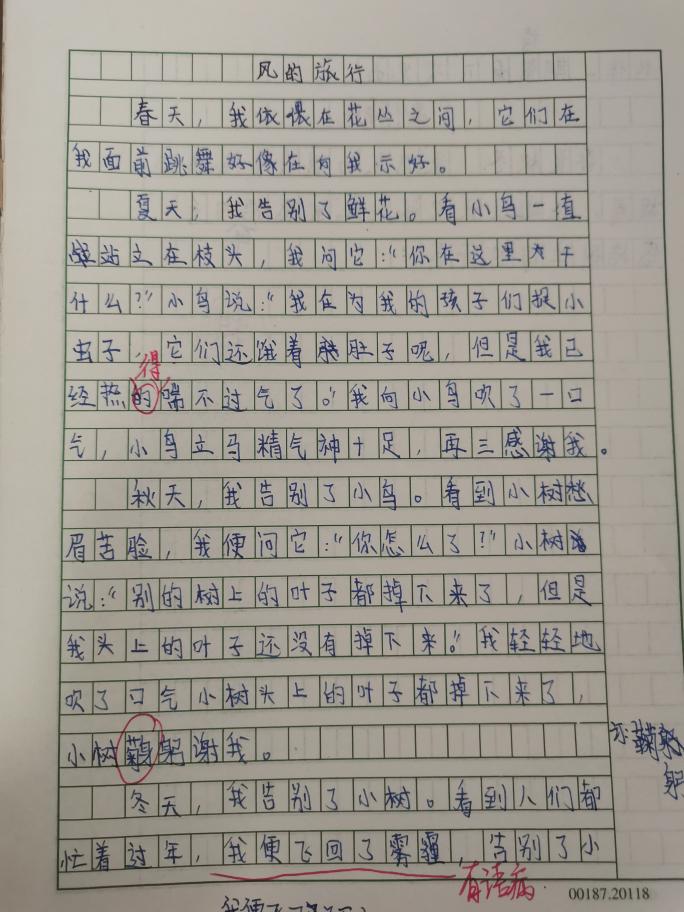 风的旅行
春天，我依偎在花丛之间，它们在
我面前跳舞好像在向我示好。
夏天，我告别了鲜花。看小鸟一直
站立在枝头，我问它：“你在这里干
什么？”小鸟说：“我在为我的孩子们捉小
虫子，它们还饿着肚子呢，但是我已
得
经热的喘不过气了。”我向小鸟吹了一口
气，小鸟立马精气神十足，再三感谢我。
秋天，我告别了小鸟。看到小树愁
眉苦脸，我便问它：“你怎么了？”小树
说：“别的树上的叶子都掉下来了，但是
我头上的叶子还没有掉下来。”我轻轻地
吹了口气小树头上的叶子都掉下来了，
小树鞠躬谢我。
冬天，我告别了小树。看到人们都
忙着过年，我便飞回了雾霾，告别了小
有语病
00187.20118